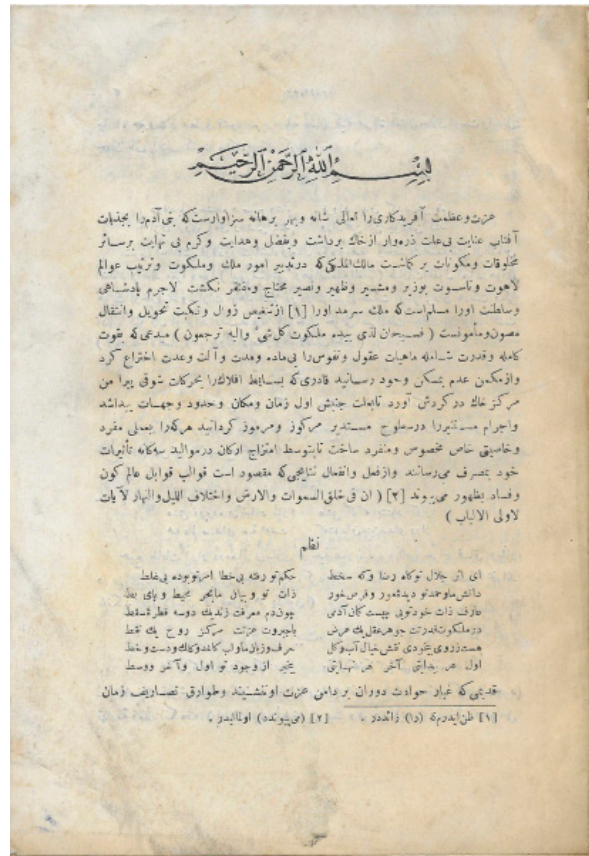 بسم الله الرحمن الرحيم
عزت وعظمت آفریدکاری را تعالی شانه وبهر برهانه سزاوارست که بنی آدم را بجذبات
آفتاب عنایت بی علت ذره وار از خاك برداشت وبفضل وهدایت وکرم بی نهایت برسائر
مخلوقات ومکونات بر کماشت مالك الملکی که درتدبیر امور ملك وملکوت وترتیب عوالم
لاهوت وناسوت بوزیر ومشیر وظهیر ونصیر محتاج ومفتقر نکشت لاجرم پادشاهی
وسلطنت اورا مسلم است که ملك سرمد اورا [١] از تنغیص زوال ونکبت تحویل وانتقال
مصون ومأمونست ( فسبحان لذی بیده ملکوت کل شیٔ والیه ترجعون ) مبدعی که بقوت
کامله وقدرت شامله ماهیات عقول ونفوس را بی ماده ومدت وآلت وعدت اختراع کرد
وازمکمن عدم بمسکن وجود رسانید قادری که بسایط افلاك را بحرکات شوقی پیرا من
مرکز خاك درکردش آورد تابعلت جنبش اول زمان ومکان وحدود وجهات پیداشد
واجرام مستنیررا درسطوح مستدیر مرکوز ومرموز کردانید هرکه را بعملی مفرد
وخاصیتی خاص مخصوص ومنفرد ساخت تابتوسط امتزاج ارکان درموالید سه کانه تأثیرات
خود بمصرف می رسانند وازفعل وانفعال نتایجی که مقصود است قوالب قوابل عالم کون
وفساد بظهور می پیوند [٢] ( ان فی خلق السموات والارض واختلاف اللیل والنهار لآیات
لاولی الالباب )
نظم
ای از جلال توکاه رضا وکه سخط حکم تو رفته بی خطا امرتو بوده بی غلط
دانش ماوحمدتو دیدۀ مور وقرص خور ذات تو وبیان ما بحر محیط وپای بط
عارف ذات خودتویی چیست کمان آدمی چون دم معرفت زند یك دوسه قطرۀ سقط
درملکوت قدرتت جوهر عقل یك عرض باجبروت عزتت مرکز روح یك نقط
هست زروی بیخودی نقش خیال آب وکل حرف وزبان ماو لب کاغذ وکلك ودست وخط
اول هر بدایتی آخر هر نهایتی بیخبر از وجود تو اول وآخر ووسط
قدیمی که غبار حوادث دوران بر دامن عزت اوننشیند وطوارق تصاریف زمان
[١] ظن ایدرم که (را) زائددر . [٢] (می پیوندد) اولمالیدر .